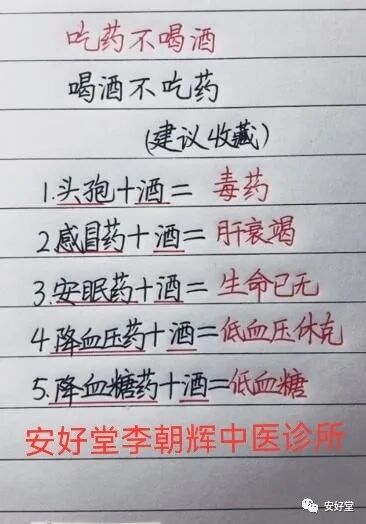 吃药不喝酒
喝酒不吃药
(建议收藏)
1.头孢+酒=毒药
2.感冒药+酒=肝衰竭
3.安眠药+酒=生命已无
4.降血压药+酒=低血压休克
5.降血糖药+酒=低血糖
安好堂李朝辉中医诊所
安好堂